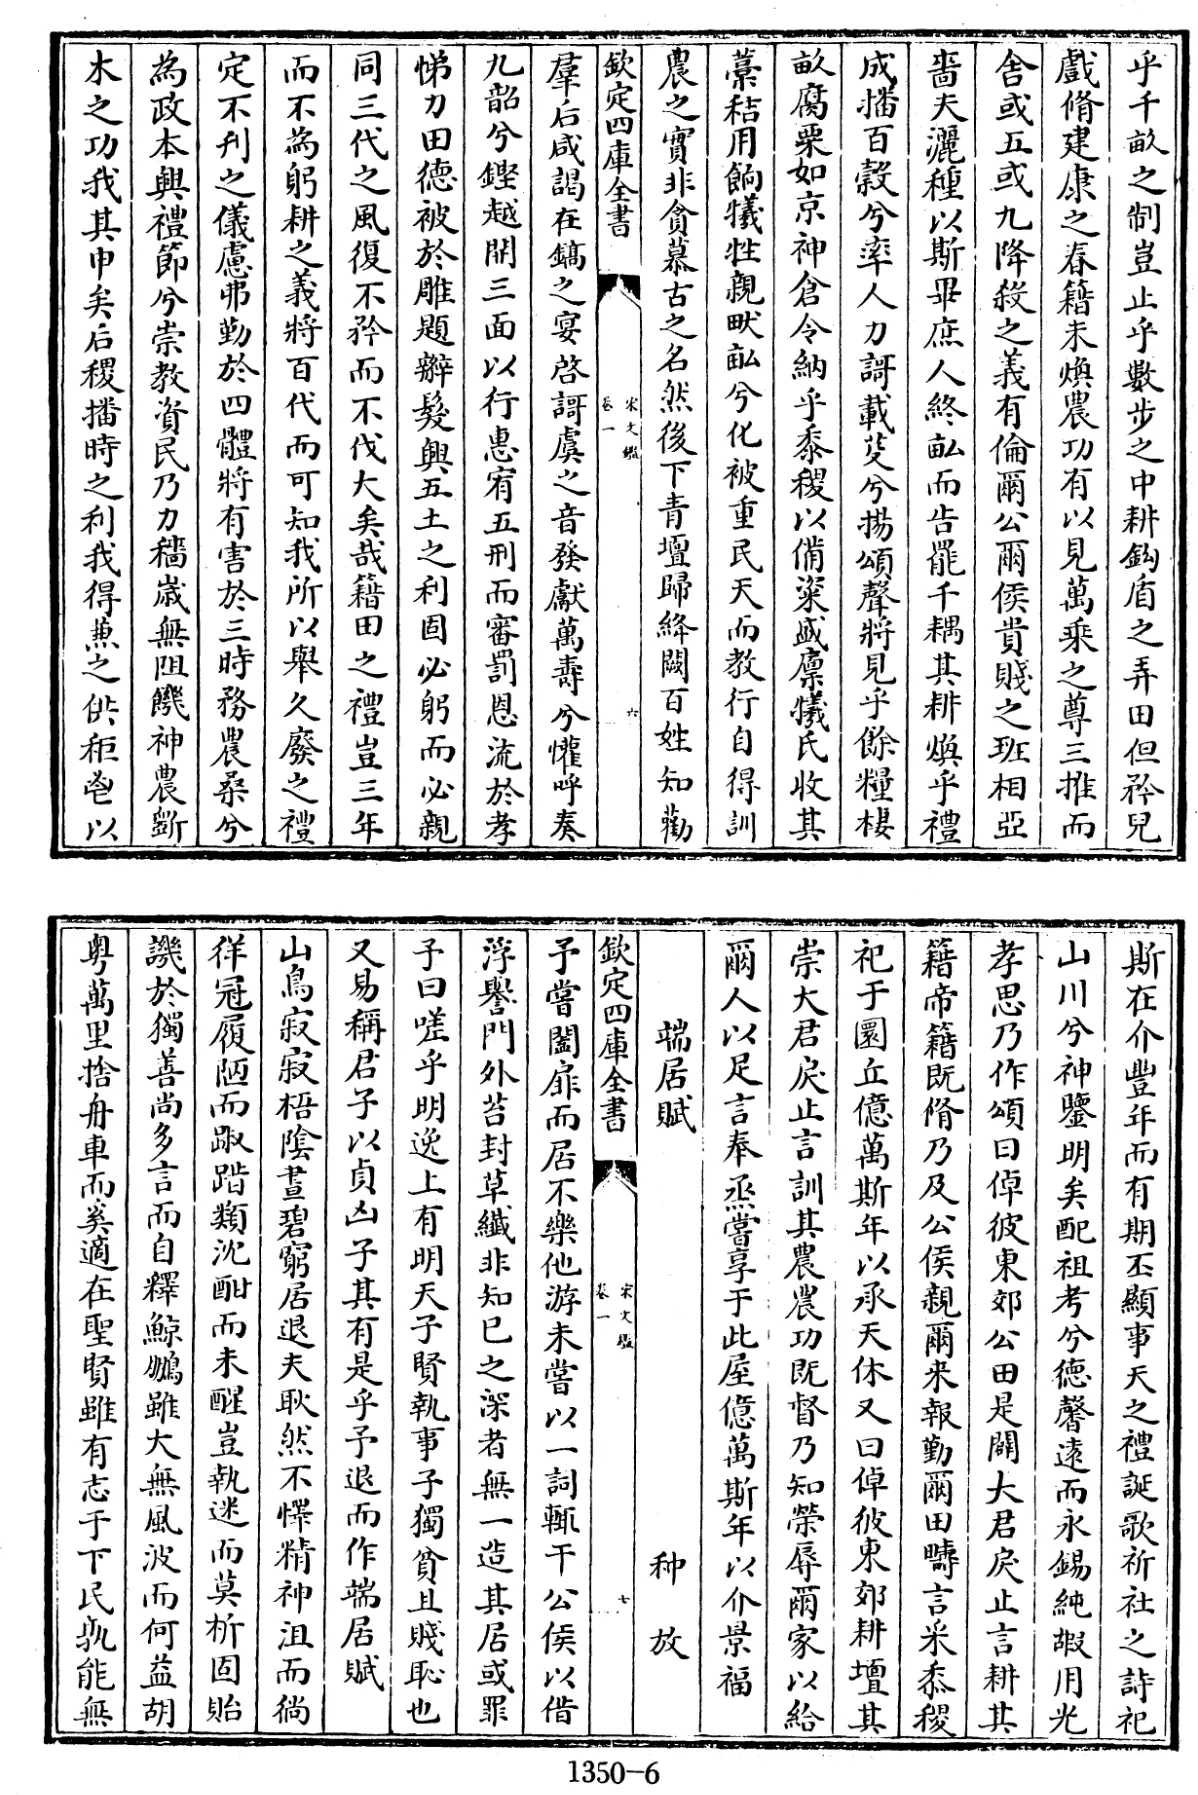 乎千畝之制豈止乎數步之中耕鈎盾之弄田但矜兒
戲脩建康之春籍未煥農功有以見萬乘之尊三推而
舍或五或九降殺之義有倫爾公爾侯貴賤之班相亞
嗇夫灑種以斯畢庶人終畝而告罷千耦其耕煥乎禮
成播百穀兮率人力謌載芟兮揚頌聲將見乎餘糧棲
畝腐粟如京神倉令納乎黍稷以備粢盛廪犧氏收其
藁秸用餉犧牲親畎畝兮化被重民天而教行自得訓
農之實非貪慕古之名然後下青壇歸絳闕百姓知勸
欽定四庫全書
宋文鑑
卷一
六
羣后咸謁在鎬之宴啓謌虞之音發獻萬壽兮懽呼奏
九韶兮鏗越開三面以行惠宥五刑而審罰恩流於孝
悌力田德被於雕題辮髮興五土之利固必躬而必親
同三代之風復不矜而不伐大矣哉籍田之禮豈三年
而不為躬耕之義將百代而可知我所以舉久廢之禮
定不刋之儀慮弗勤於四體將有害於三時務農桒兮
為政本興禮節兮崇教資民乃力穡歲無阻饑神農斲
木之功我其申矣后稷播時之利我得兼之供秬鬯以
斯在介豐年而有期丕顯事天之禮誕歌祈社之詩祀
山川兮神鑒明矣配祖考兮德馨遠而永錫純嘏用光
孝思乃作頌曰倬彼東郊公田是闢大君戾止言耕其
籍帝籍既脩乃及公侯親爾来報勤爾田疇言采黍稷
祀于圜丘億萬斯年以承天休又曰倬彼東郊耕壇其
崇大君戾止言訓其農農功既督乃知榮辱爾家以給
爾人以足言奉烝嘗享于此屋億萬斯年以介景福
端居賦　种放
欽定四庫全書
宋文鑑
卷一
七
予嘗闔扉而居不樂他游未嘗以一詞輒干公侯以借
浮譽門外苔封草纖非知已之深者無一造其居或罪
予曰嗟乎明逸上有明天子賢執事子獨貧且賤恥也
又易稱君子以貞凶子其有是乎予退而作端居賦
山鳥寂寂梧陰晝碧窮居退夫耿然不懌精神沮而徜
徉冠履陋而踧踖類沈酣而未醒豈執迷而莫析固貽
譏於獨善尚多言而自釋鯨鵬雖大無風波而何益胡
粤萬里捨舟車而奚適在聖賢雖有志于下民孰能無
1350-6